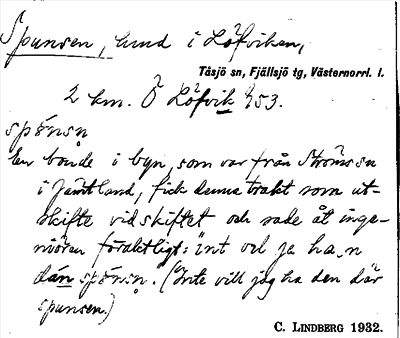 Spunsen, lund i Löfviken,
Tåsjö sn, Fjällsjö tg, Västernorrl. l.
2 km. Ö Löfvik 953.
spönsn
En bonde i byn, som var från Ströms sn
i Jämtland, fick denna trakt som ut-
skifte vid skiftet och sade åt inge-
niören föraktligt: int vel ja ha n
dän spönsn. (Inte vill jag ha den där
spunsen.)
C. LINDBERG 1932.